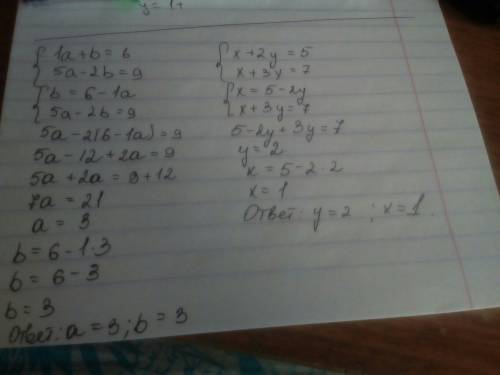 y = 1+
{ 1a + b = 6
5a - 2b = 9
{ b = 6 - 1a
5a - 2b = 9
5a - 2(6 - 1a) = 9
5a - 12 + 2a = 9
5a + 2a = 9 + 12
7a = 21
a = 3
b = 6 - 1·3
b = 6 - 3
b = 3
Ответ: a = 3; b = 3
{ x + 2y = 5
x + 3x = 7
{ x = 5 - 2y
x + 3y = 7
5 - 2y + 3y = 7
y = 2
x = 5 - 2·2
x = 1
Ответ: y = 2 ; x = 1.